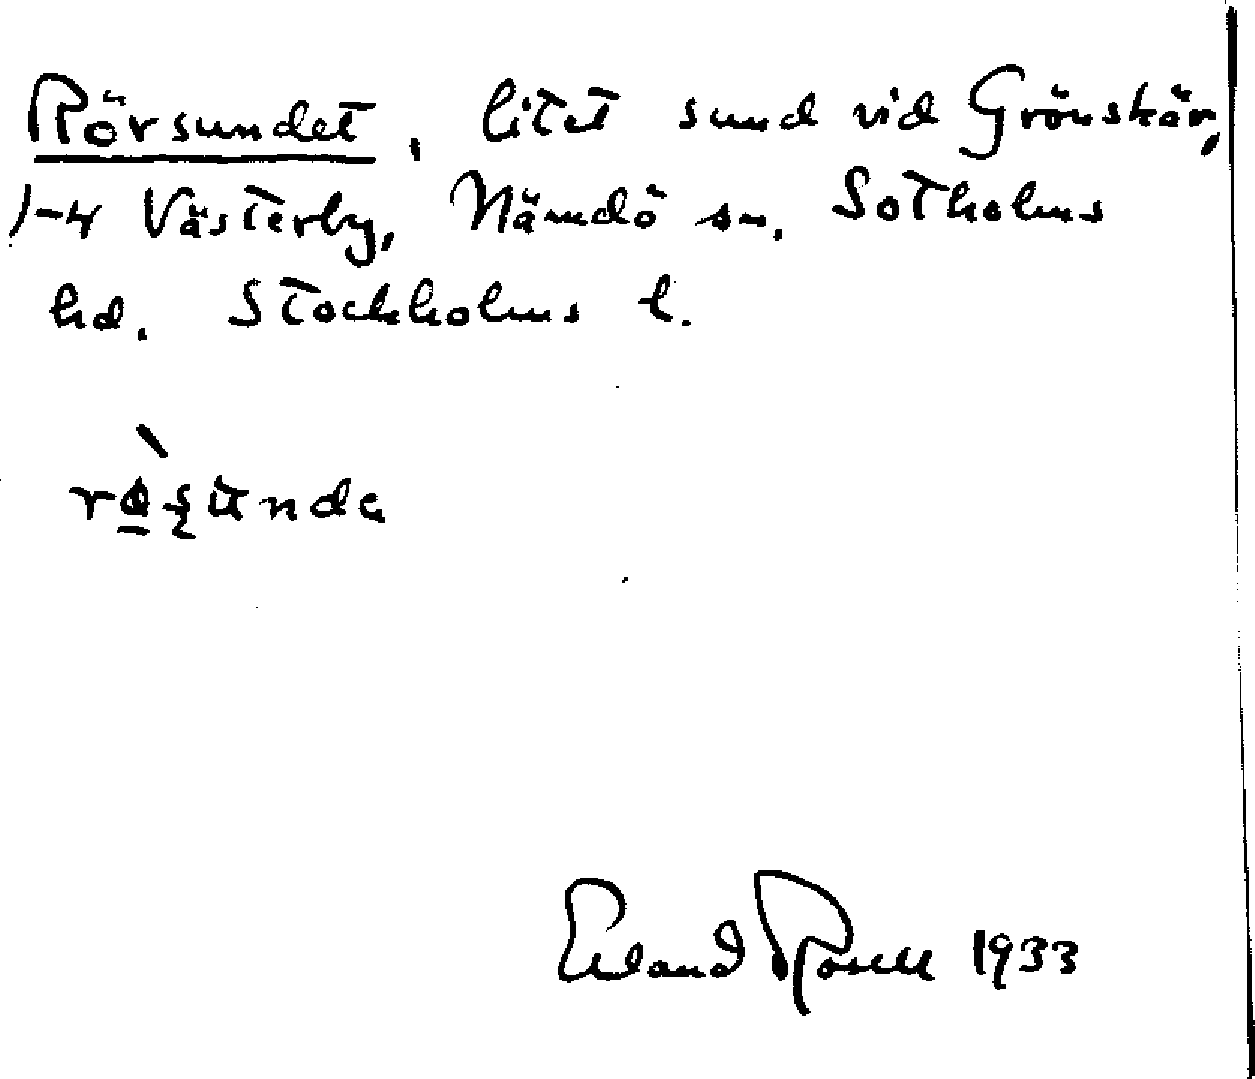 Rörsundet, litet sund vid Grönskär,
1-4 Västerby, Nämdö sn. Sotholms
hd. Stockholms l.
Erland Rosell 1933